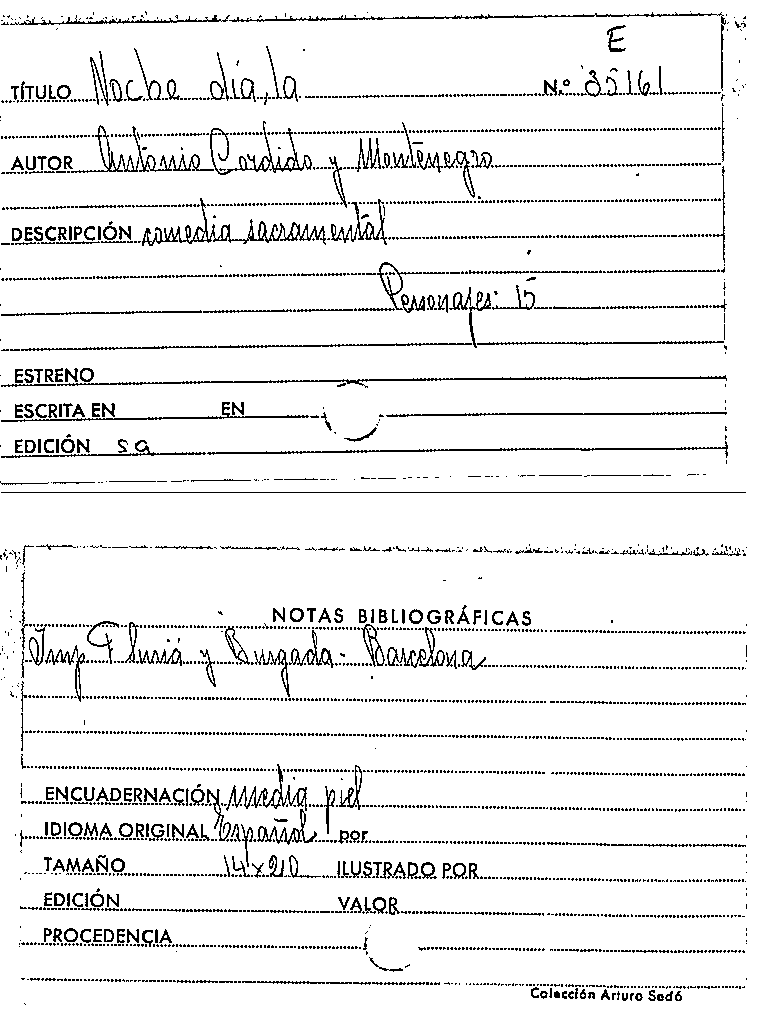 E
TÍTULO Noche día, la N.º 35161
AUTOR Antonio Cordido y Montenegro
DESCRIPCIÓN comedia sacramental
Personajes: 15
ESTRENO
ESCRITA EN EN
EDICIÓN s a
NOTAS BIBLIOGRÁFICAS
Imp Fluviá y Burgada - Barcelona
ENCUADERNACIÓN media piel
IDIOMA ORIGINAL Español por
TAMAÑO 14x20 ILUSTRADO POR
EDICIÓN VALOR
PROCEDENCIA
Colección Arturo Sedó